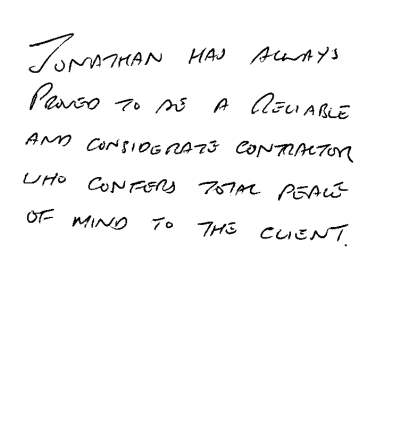 JONATHAN HAS ALWAYS
PROVED TO BE A RELIABLE
AND CONSIDERATE CONTRACTOR
WHO CONFERS TOTAL PEACE
OF MIND TO THE CLIENT.